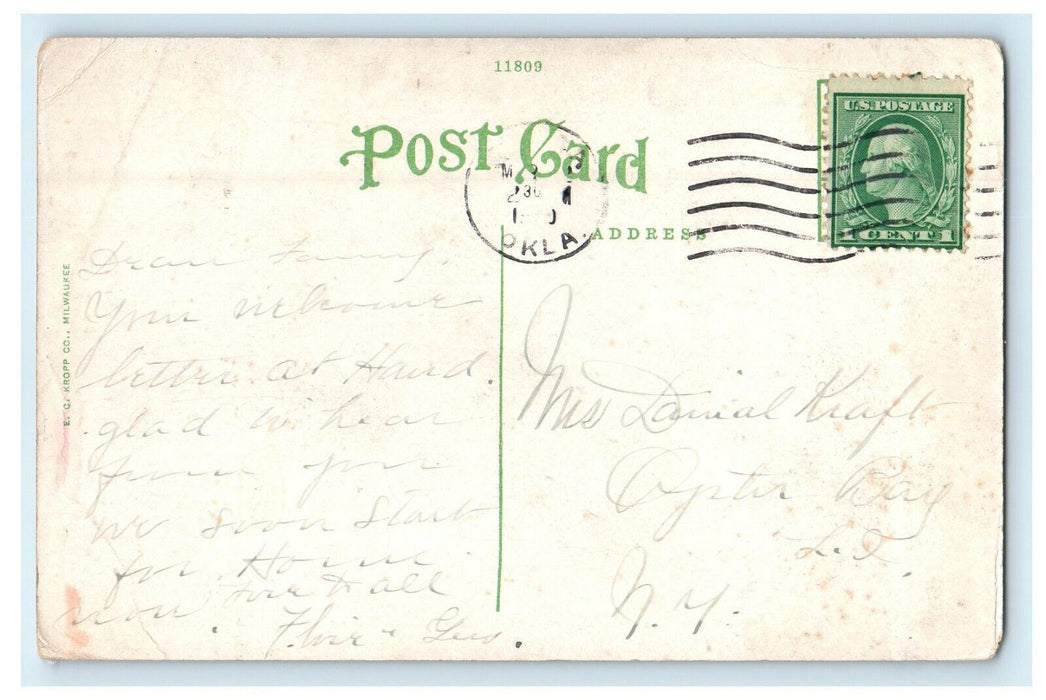 11809
POST CARD
U.S. POSTAGE
1 CENTS 1
M
2 30
1
OKLA.
ADDRESS
E. C. KROPP CO., MILWAUKEE
Dear Fanny,
Your welcome
letter at Hand.
glad to hear
from you
we soon start
for Home
now. love to all
&
Mrs Danial Kraft
Oyster Bay
L.I.
N.Y.